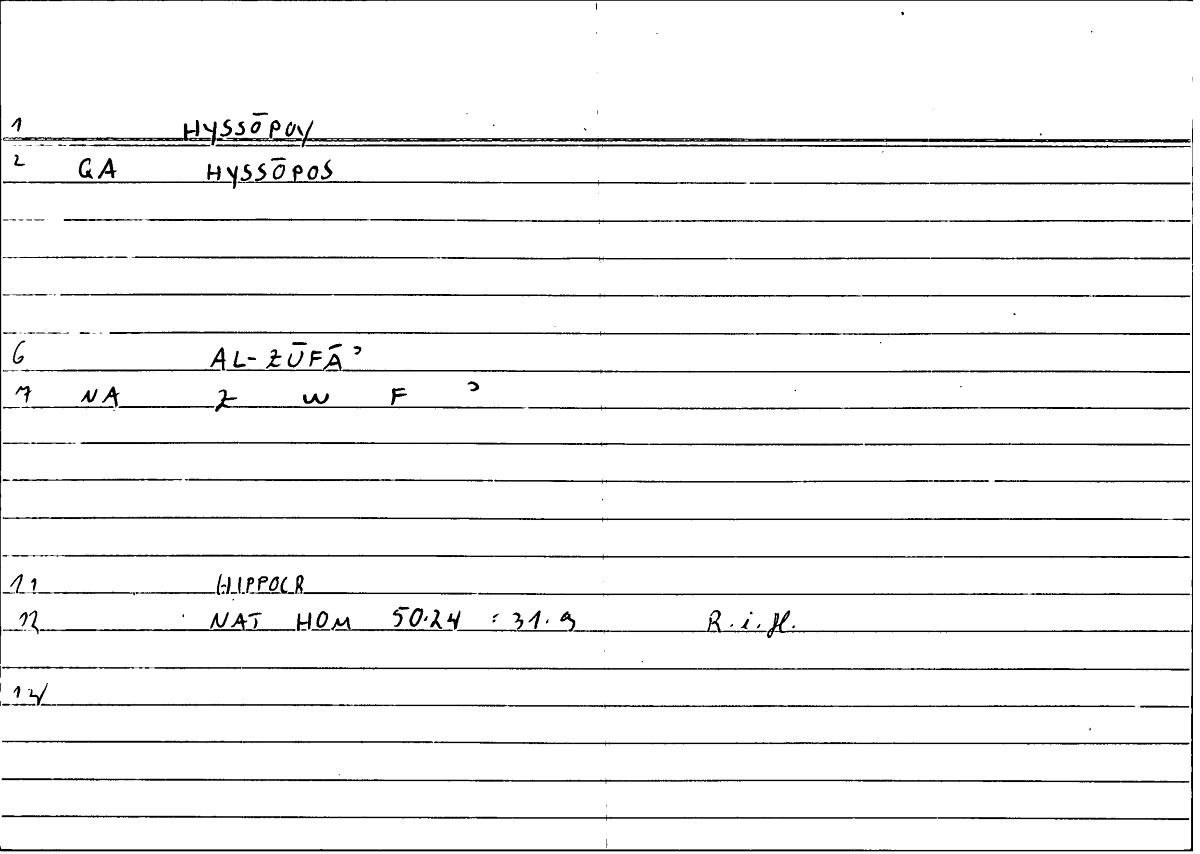 1 HYSSŌPOV
2 GA HYSSŌPOS
6 AL-ZŪFĀʾ
7 NA Z W F ʾ
11 HIPPOCR
12 NAT HOM 50.24 = 31.9 R.i.H.